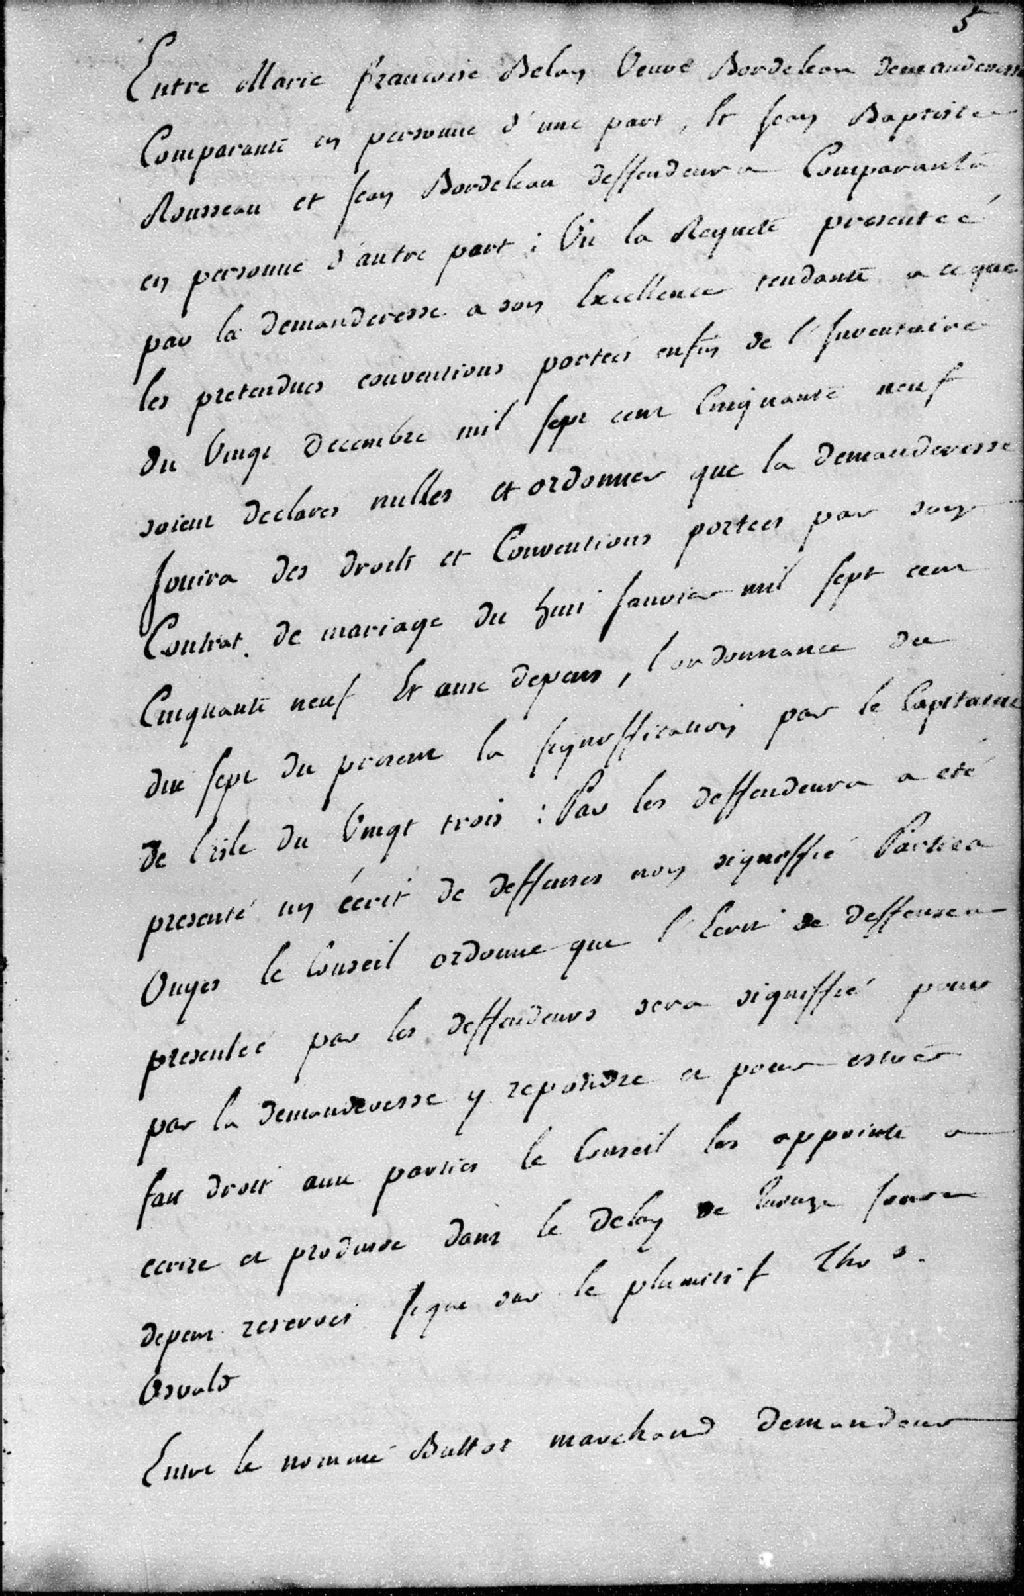 5
Entre Marie francoise Belan Veuve Bordeleau demanderesse
Comparante en personne d'une part, Et Jean Baptiste
Rousseau et Jean Bordeleau deffendeurs Comparants
en personne d'autre part; Vu la Requete presenteé
par la demanderesse a son Excellence tendante a ce que
les pretendues conventions portées enfin de l'Inventaire
du Vingt decembre mil sept cent Cinquante neuf
soient declares nulles et ordonner que la demanderesse
Jouira des droits et Conventions portees par son
Contrat de mariage du huit Janvier mil sept cent
Cinquante neuf Et aux depens, l'ordonnance du
dix sept du present la signiffication par le Capitaine
de l'isle du Vingt trois: Par les deffendeurs a eté
presenté un écrit de deffenses non signiffié Parties
Ouyes le Conseil ordonne que l'Ecrit de deffenses
presenteé par les deffendeurs sera signiffié pour
par la demanderesse y repondre et pour estre
fait droit aux parties le Conseil les appointe a
ecrire et produire dans le delay de quinze Jours
depens reservés signé sur le plumitif Tho s.
Osvald
Entre le nommé Buttos marchand demandeur